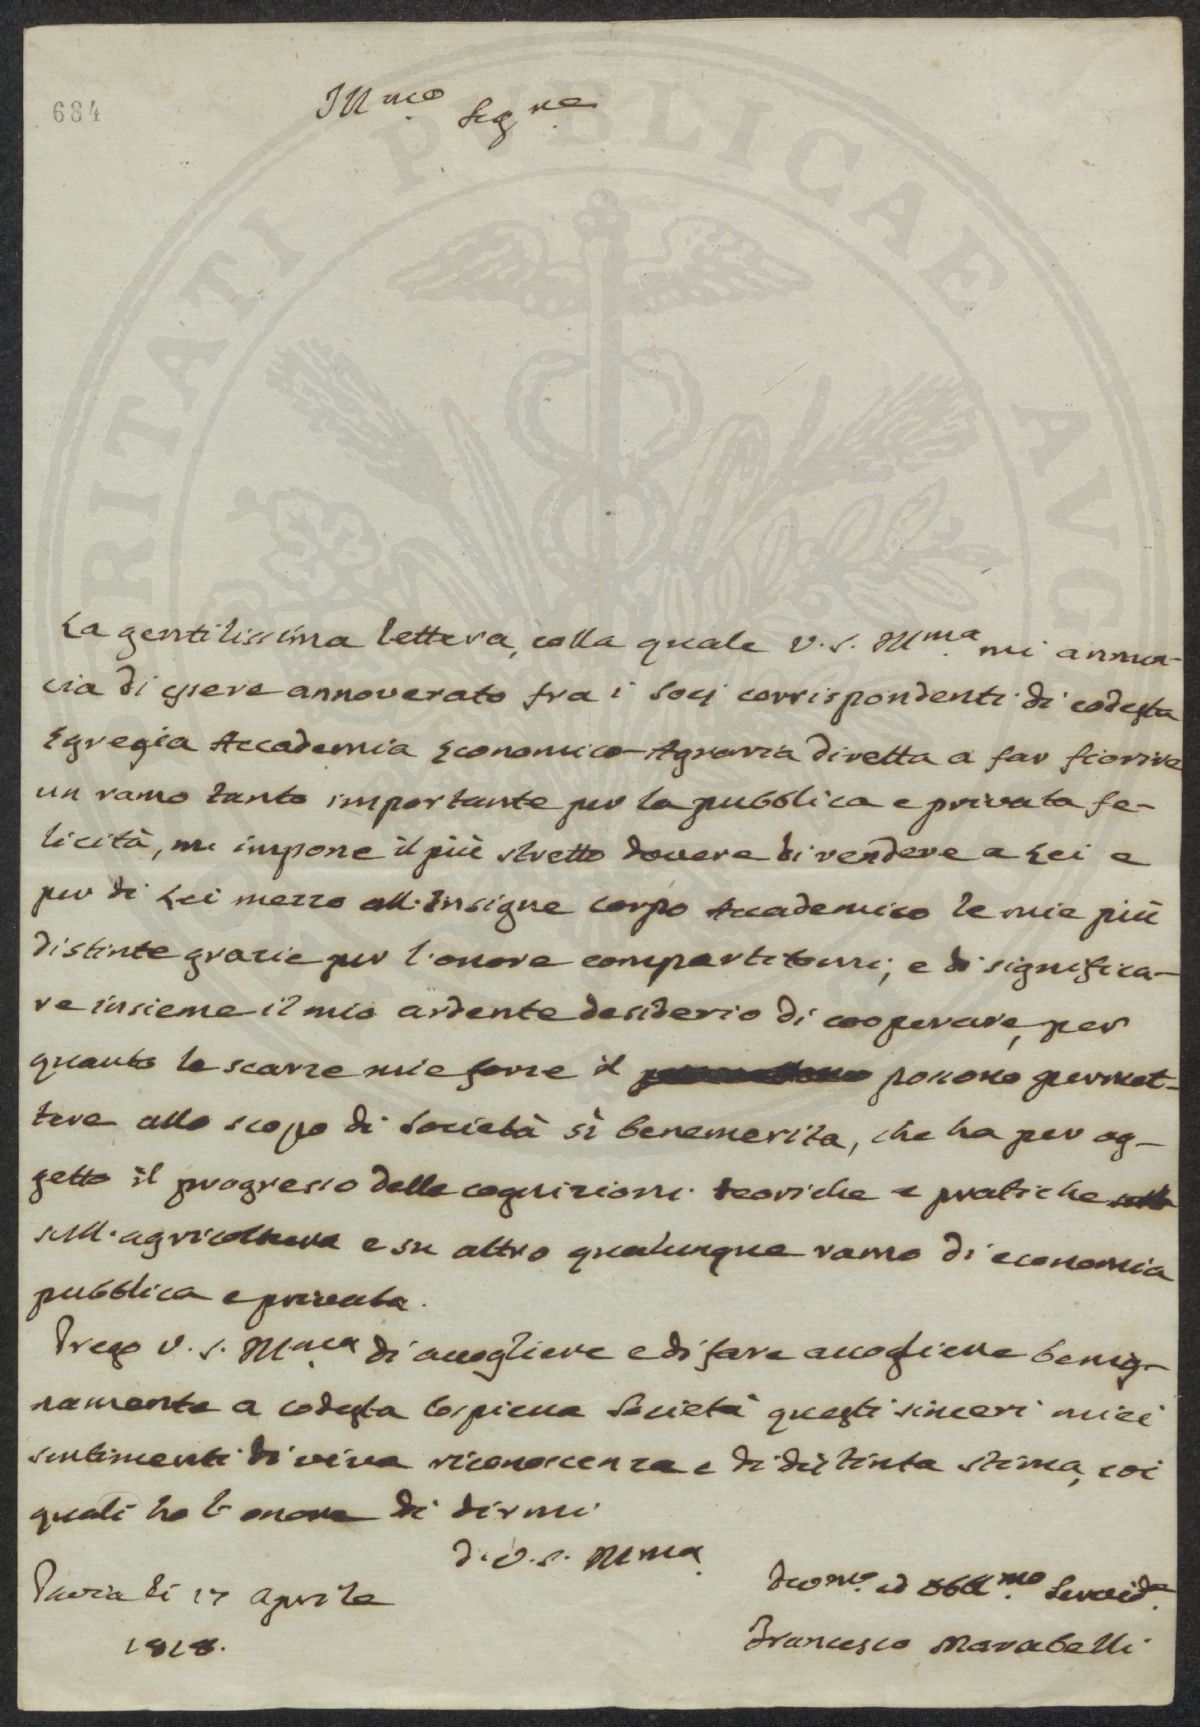 684
Ill.mo Sig.re
La gentilissima lettera, colla quale V. S. Ill.ma mi annun-
cia di essere annoverato fra i Socj corrispondenti di codesta
Egregia Accademia Economico-Agraria diretta a far fiorire
un ramo tanto importante per la pubblica e privata fe-
licità, mi impone il più stretto dovere di rendere a Lei e
per di Lei mezzo all'Insigne corpo Accademico le mie più
distinte grazie per l'onore compartitomi; e di significa-
re insieme il mio ardente desiderio di cooperare, per
quanto le scarze mie forze il possono permet-
tere allo scopo di Società sì benemerita, che ha per og-
getto il progresso delle cognizioni teoriche e pratiche
sull'agricoltura e su altro qualunque ramo di economia
pubblica e privata.
Prego V. S. Ill.ma di accogliere e di fare accogliere benig-
namente a codesta cospicua Società questi sinceri miei
sentimenti di viva riconoscenza e di distinta stima, coi
quali ho l'onore di dirmi
D. V. S. Ill.ma
Pavia li 17 Aprile
1818.
Dev.mo ed Obbl.mo Servid.e
Francesco Marabelli
PUBLICAE